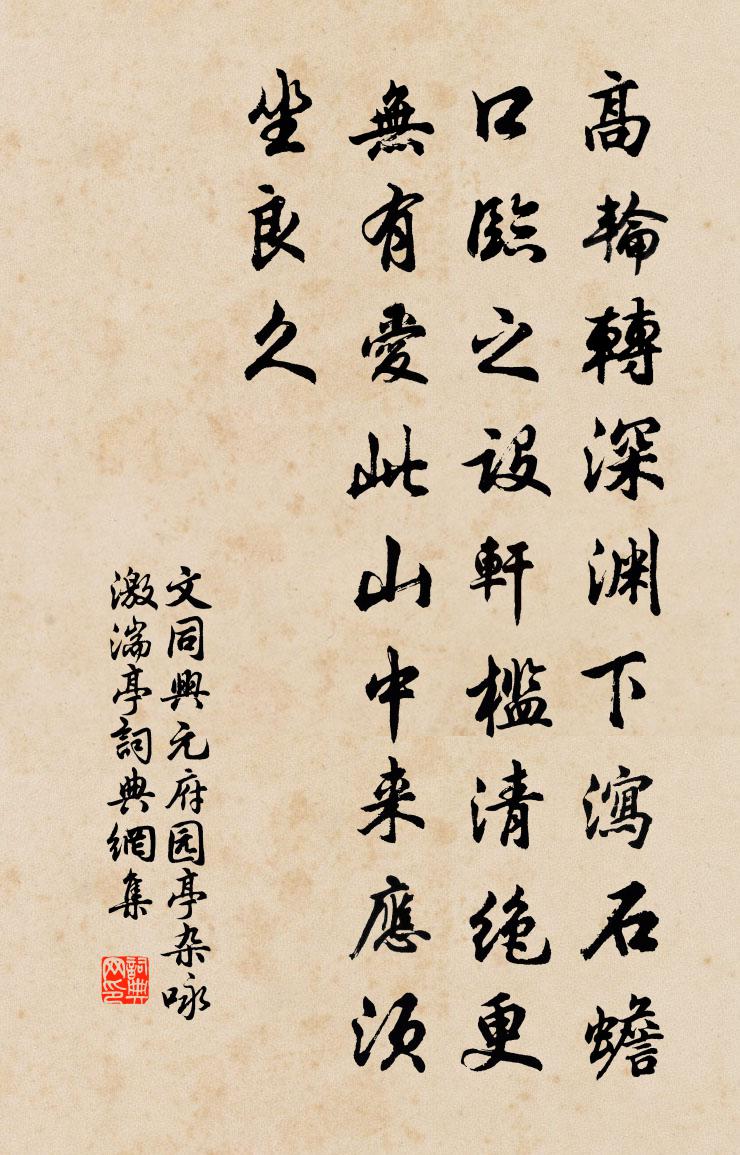 高輪轉深渊下瀉石蟾
口臨之設軒檻清绝更
無有愛此山中来應須
坐良久
文同興元府园亭杂咏
激湍亭詞典網集
詞典网印